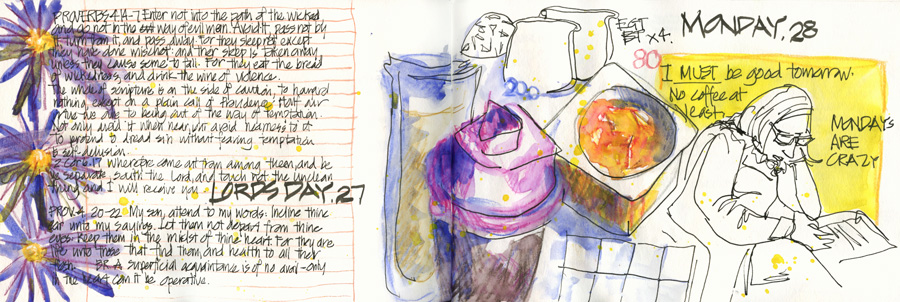 PROVERBS 4.14-7 Enter not into the path of the wicked
and go not in the way of evil man. Avoid it, pass not by
it, turn from it, and pass away. For they sleep not except
they have done mischief: and their sleep is taken away
unless they cause some to fall. For they eat the bread
of wickedness, and drink the wine of violence.
The whole of scripture is on the side of caution, to hazard
nothing, except on a plain call of Providence. Half our
virtue to being out of the way of temptation.
Not only avoid it when near, but avoid nearness to it
to pretend to dread sin without fearing temptation
is self-delusion.
2 Cor 6.17 Wherefore come out from among them, and be
ye separate, saith the Lord, and touch not the unclean
thing and I will receive you
LORD'S DAY. 27
PROV. 4 20-22 My son, attend to my words. Incline thine
ear unto my sayings. Let them not depart from thine
eyes. Keep them in the midst of thine heart. For they are
life unto those that find them, and health to all their
flesh. BR. A superficial acquaintance is of no avail - only
in the heart can it be operative.
EST
BT x 4.
200
80
MONDAY. 28
I MUST be good tomorrow.
No coffee at
least.
MONDAYS
ARE
CRAZY